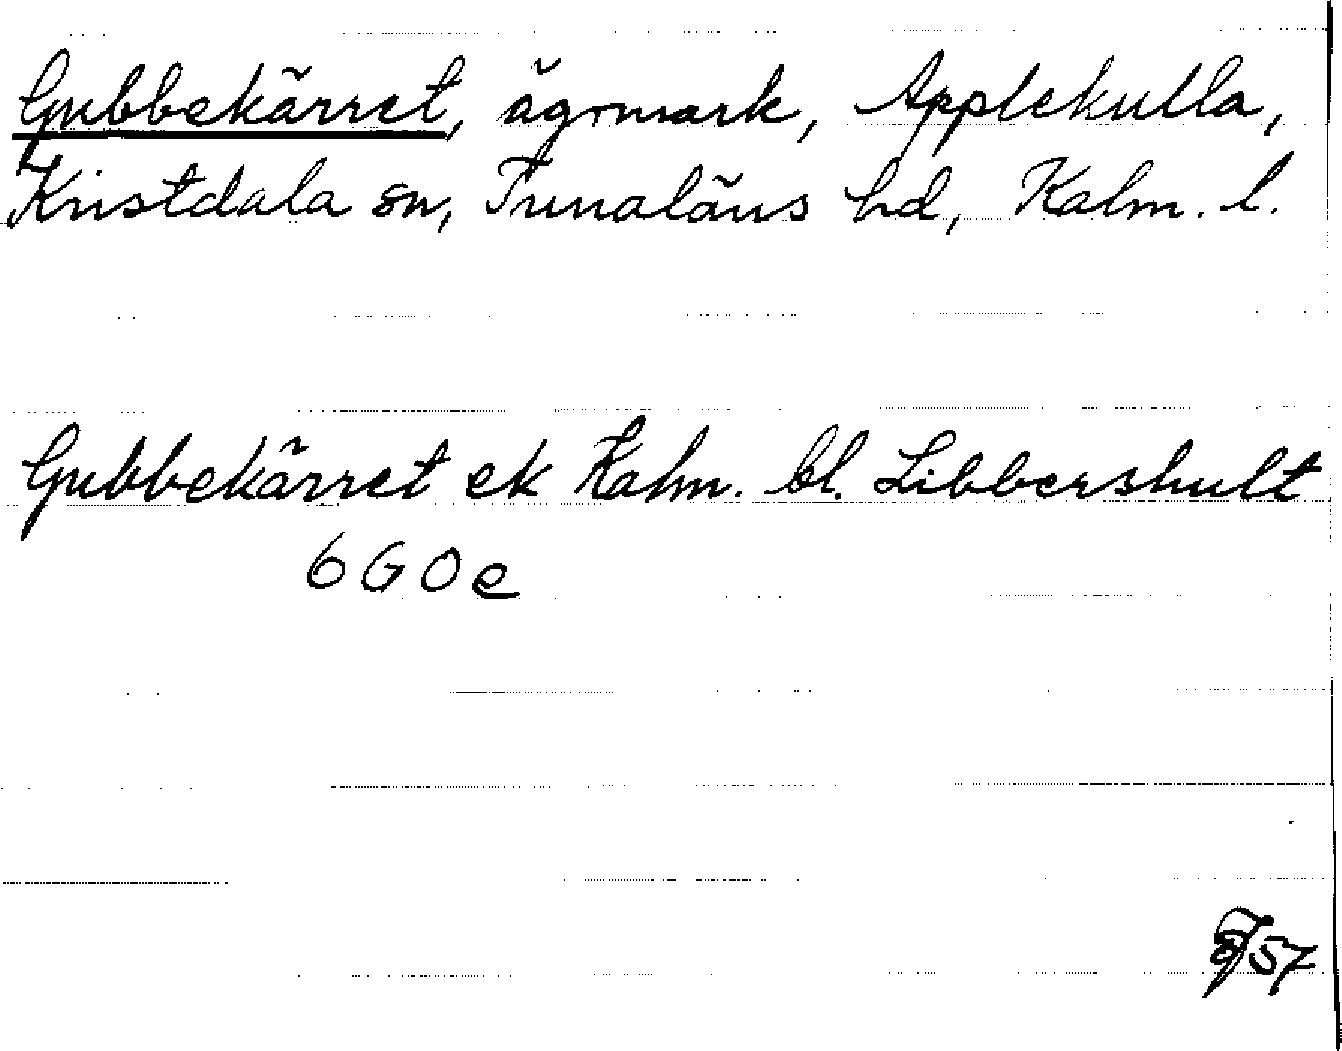 Gubbekärret, ägomark, Applekulla,
Kristdala sn, Tunaläns hd, Kalm. l.
Gubbekärret ek Kalm. bl. Libbershult
6 G 0 e
/57